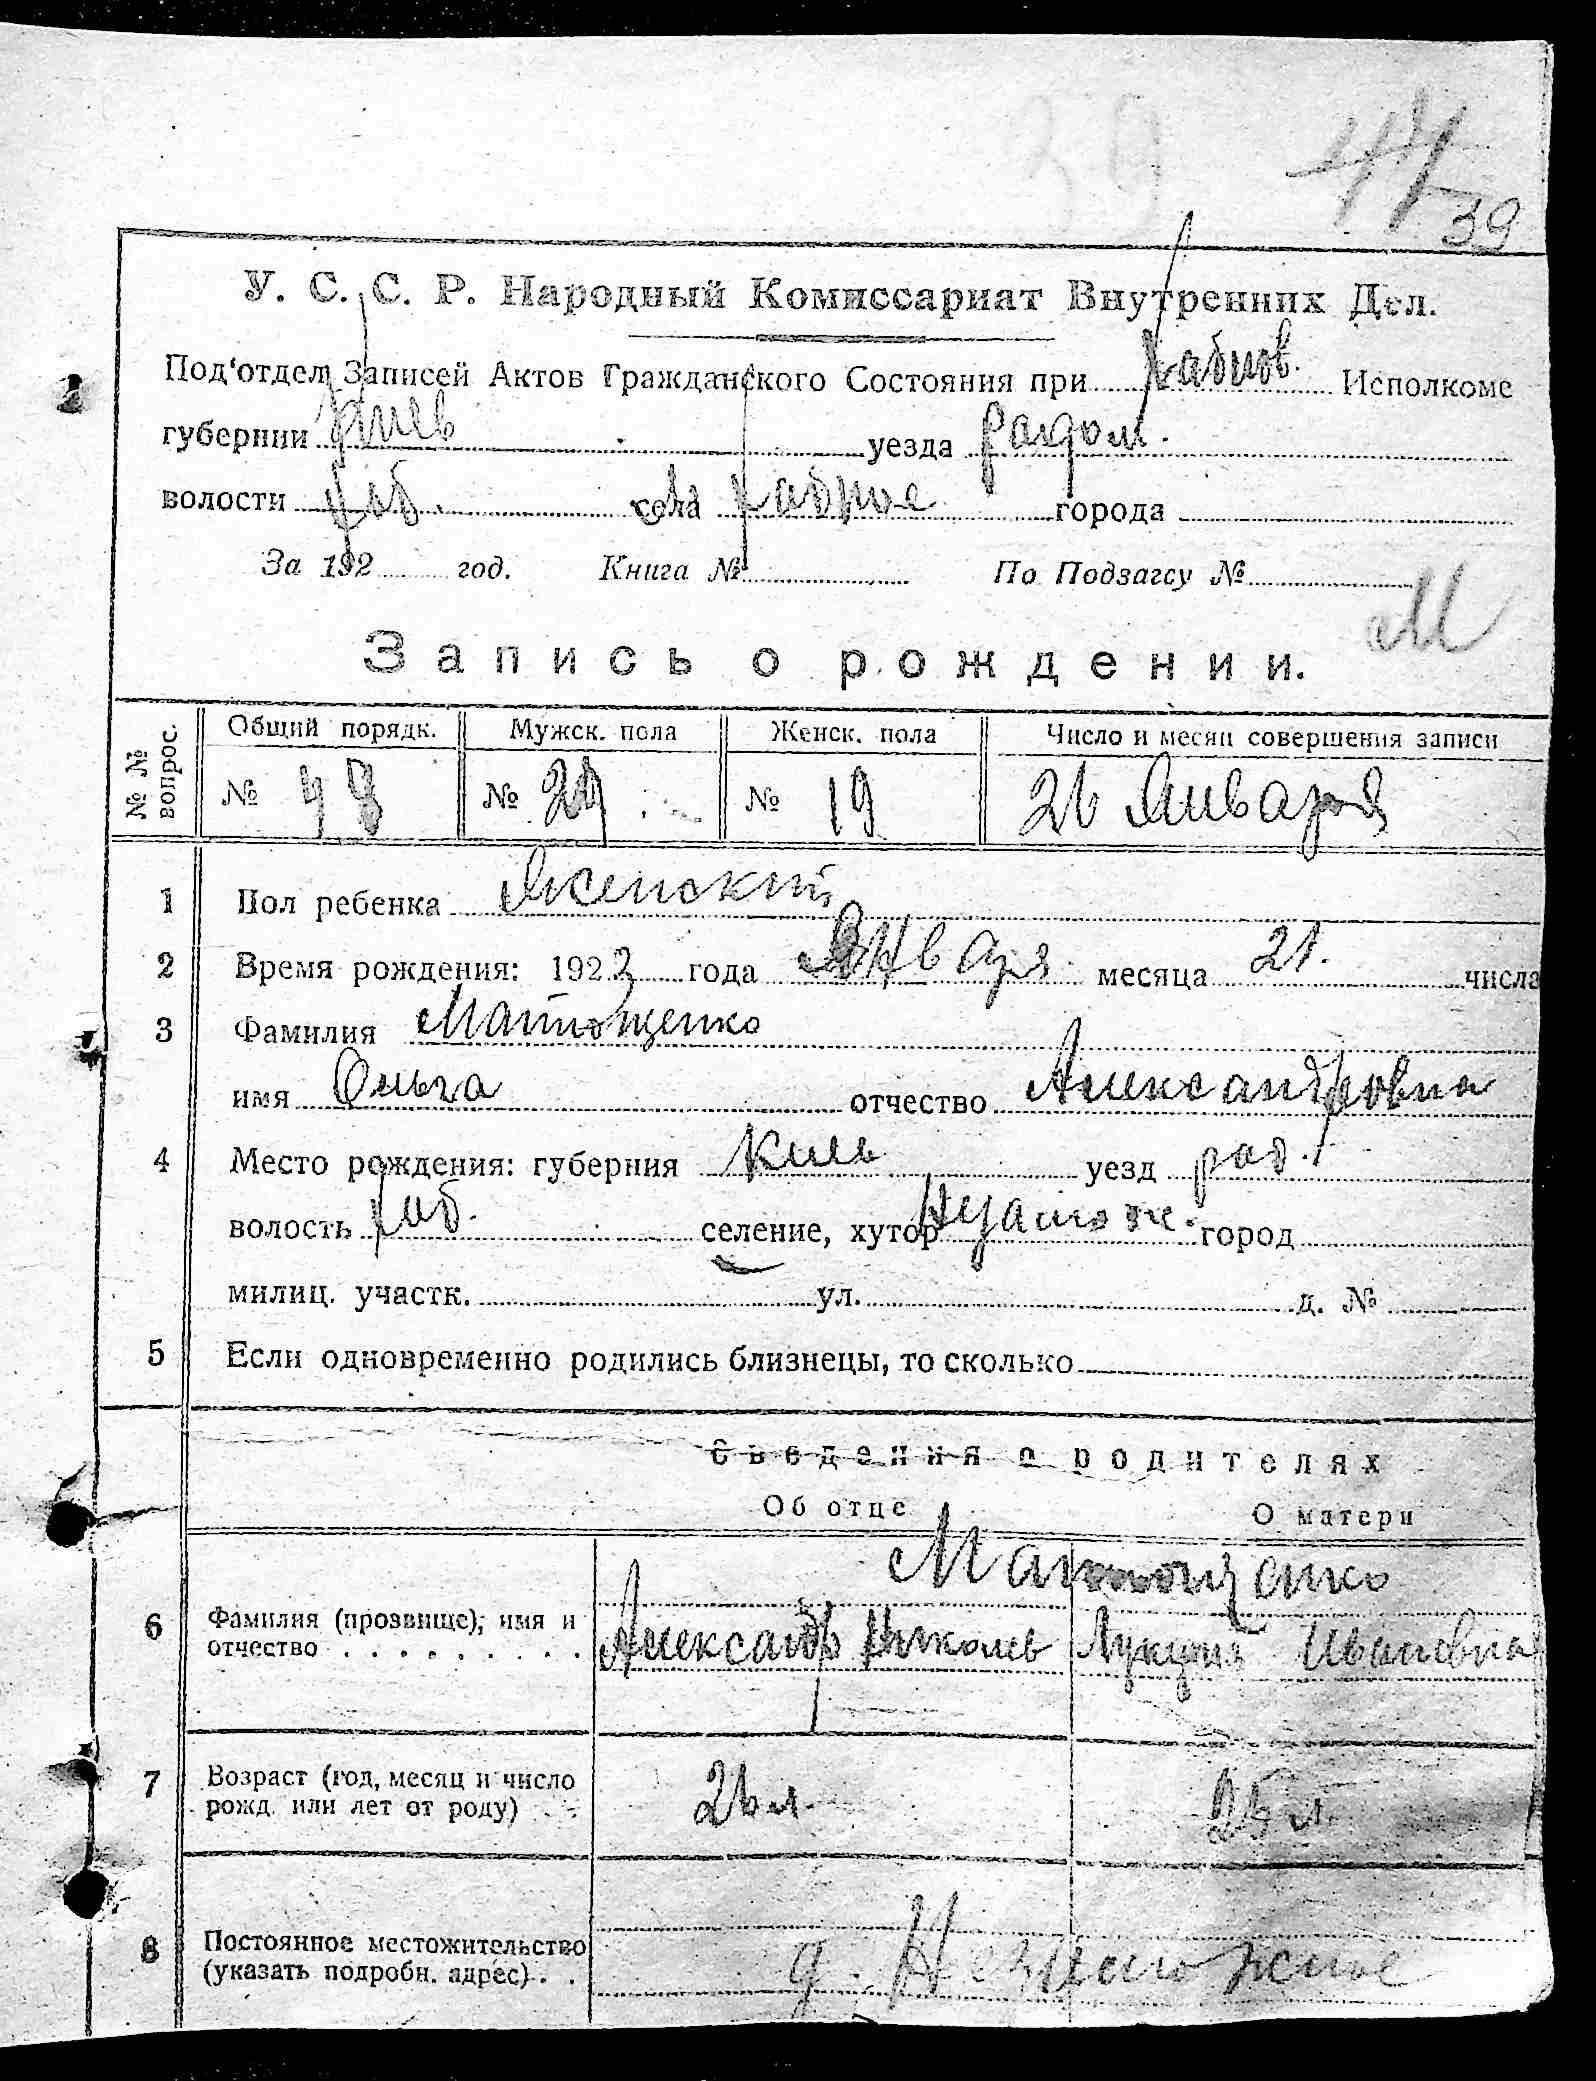 39
44
39
У. С. С. Р. Народный Комиссариат Внутренних Дел.
Под'отдел Записей Актов Гражданского Состояния при Хабнов. Исполкоме
губернии Киев уезда радом.
волости Хаб. села м Хабное города
За 192 год. Книга № По Подзагсу №
М
Запись о рождении.
№ № вопрос. Общий порядк. Мужск. пола Женск. пола Число и месяц совершения записи
№ 48 № 29 № 19 26 Января
1 Пол ребенка Женский
2 Время рождения: 1923 года Января месяца 21. числа
3 Фамилия Матющенко
имя Ольга отчество Александровна
4 Место рождения: губерния Киев уезд рад.
волость Хаб. селение, хутор город
милиц. участк. ул. д. №
5 Если одновременно родились близнецы, то сколько
Сведения о родителях
Об отце О матери
Матющенко
6 Фамилия (прозвище), имя и
отчество . . . . . . . . . Александр Николаев Лукерия Ивановна
7 Возраст (год, месяц и число
рожд. или лет от роду) 26 л. 25 л.
8 Постоянное местожительство
(указать подробн. адрес) . . д.